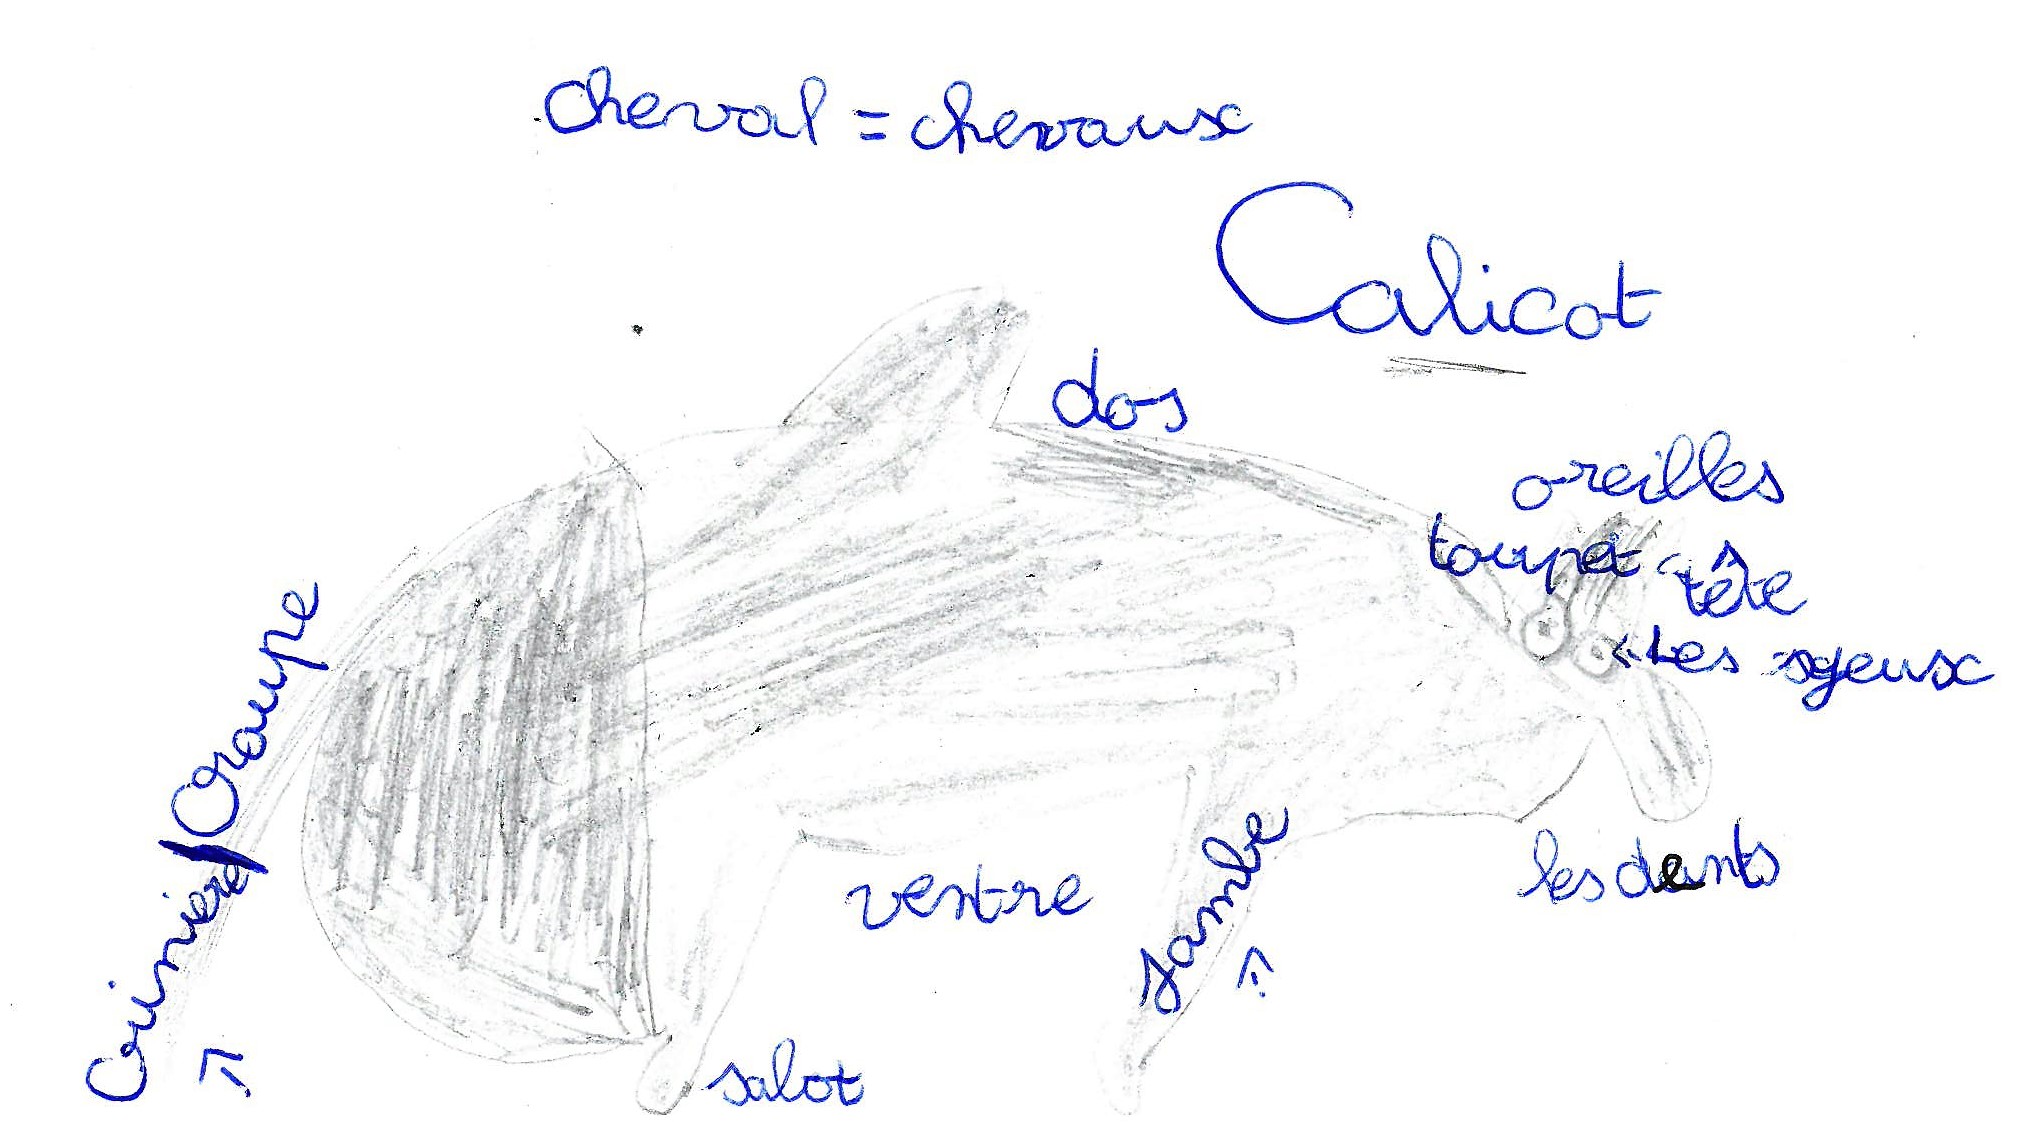 cheval = chevaux
Calicot
dos
oreilles
toupet
tête
Les yeux
Crinière/Croupe
les dents
ventre
Jambe
sabot